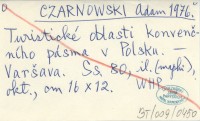 CZARNOWSKI Adam 1976.
Turistické oblasti konvenč-
ního pásma v Polsku. —
Varšava. Ss. 80, il. (mapki),
okt., cm 16 x 12. WHP
ST/009/0450